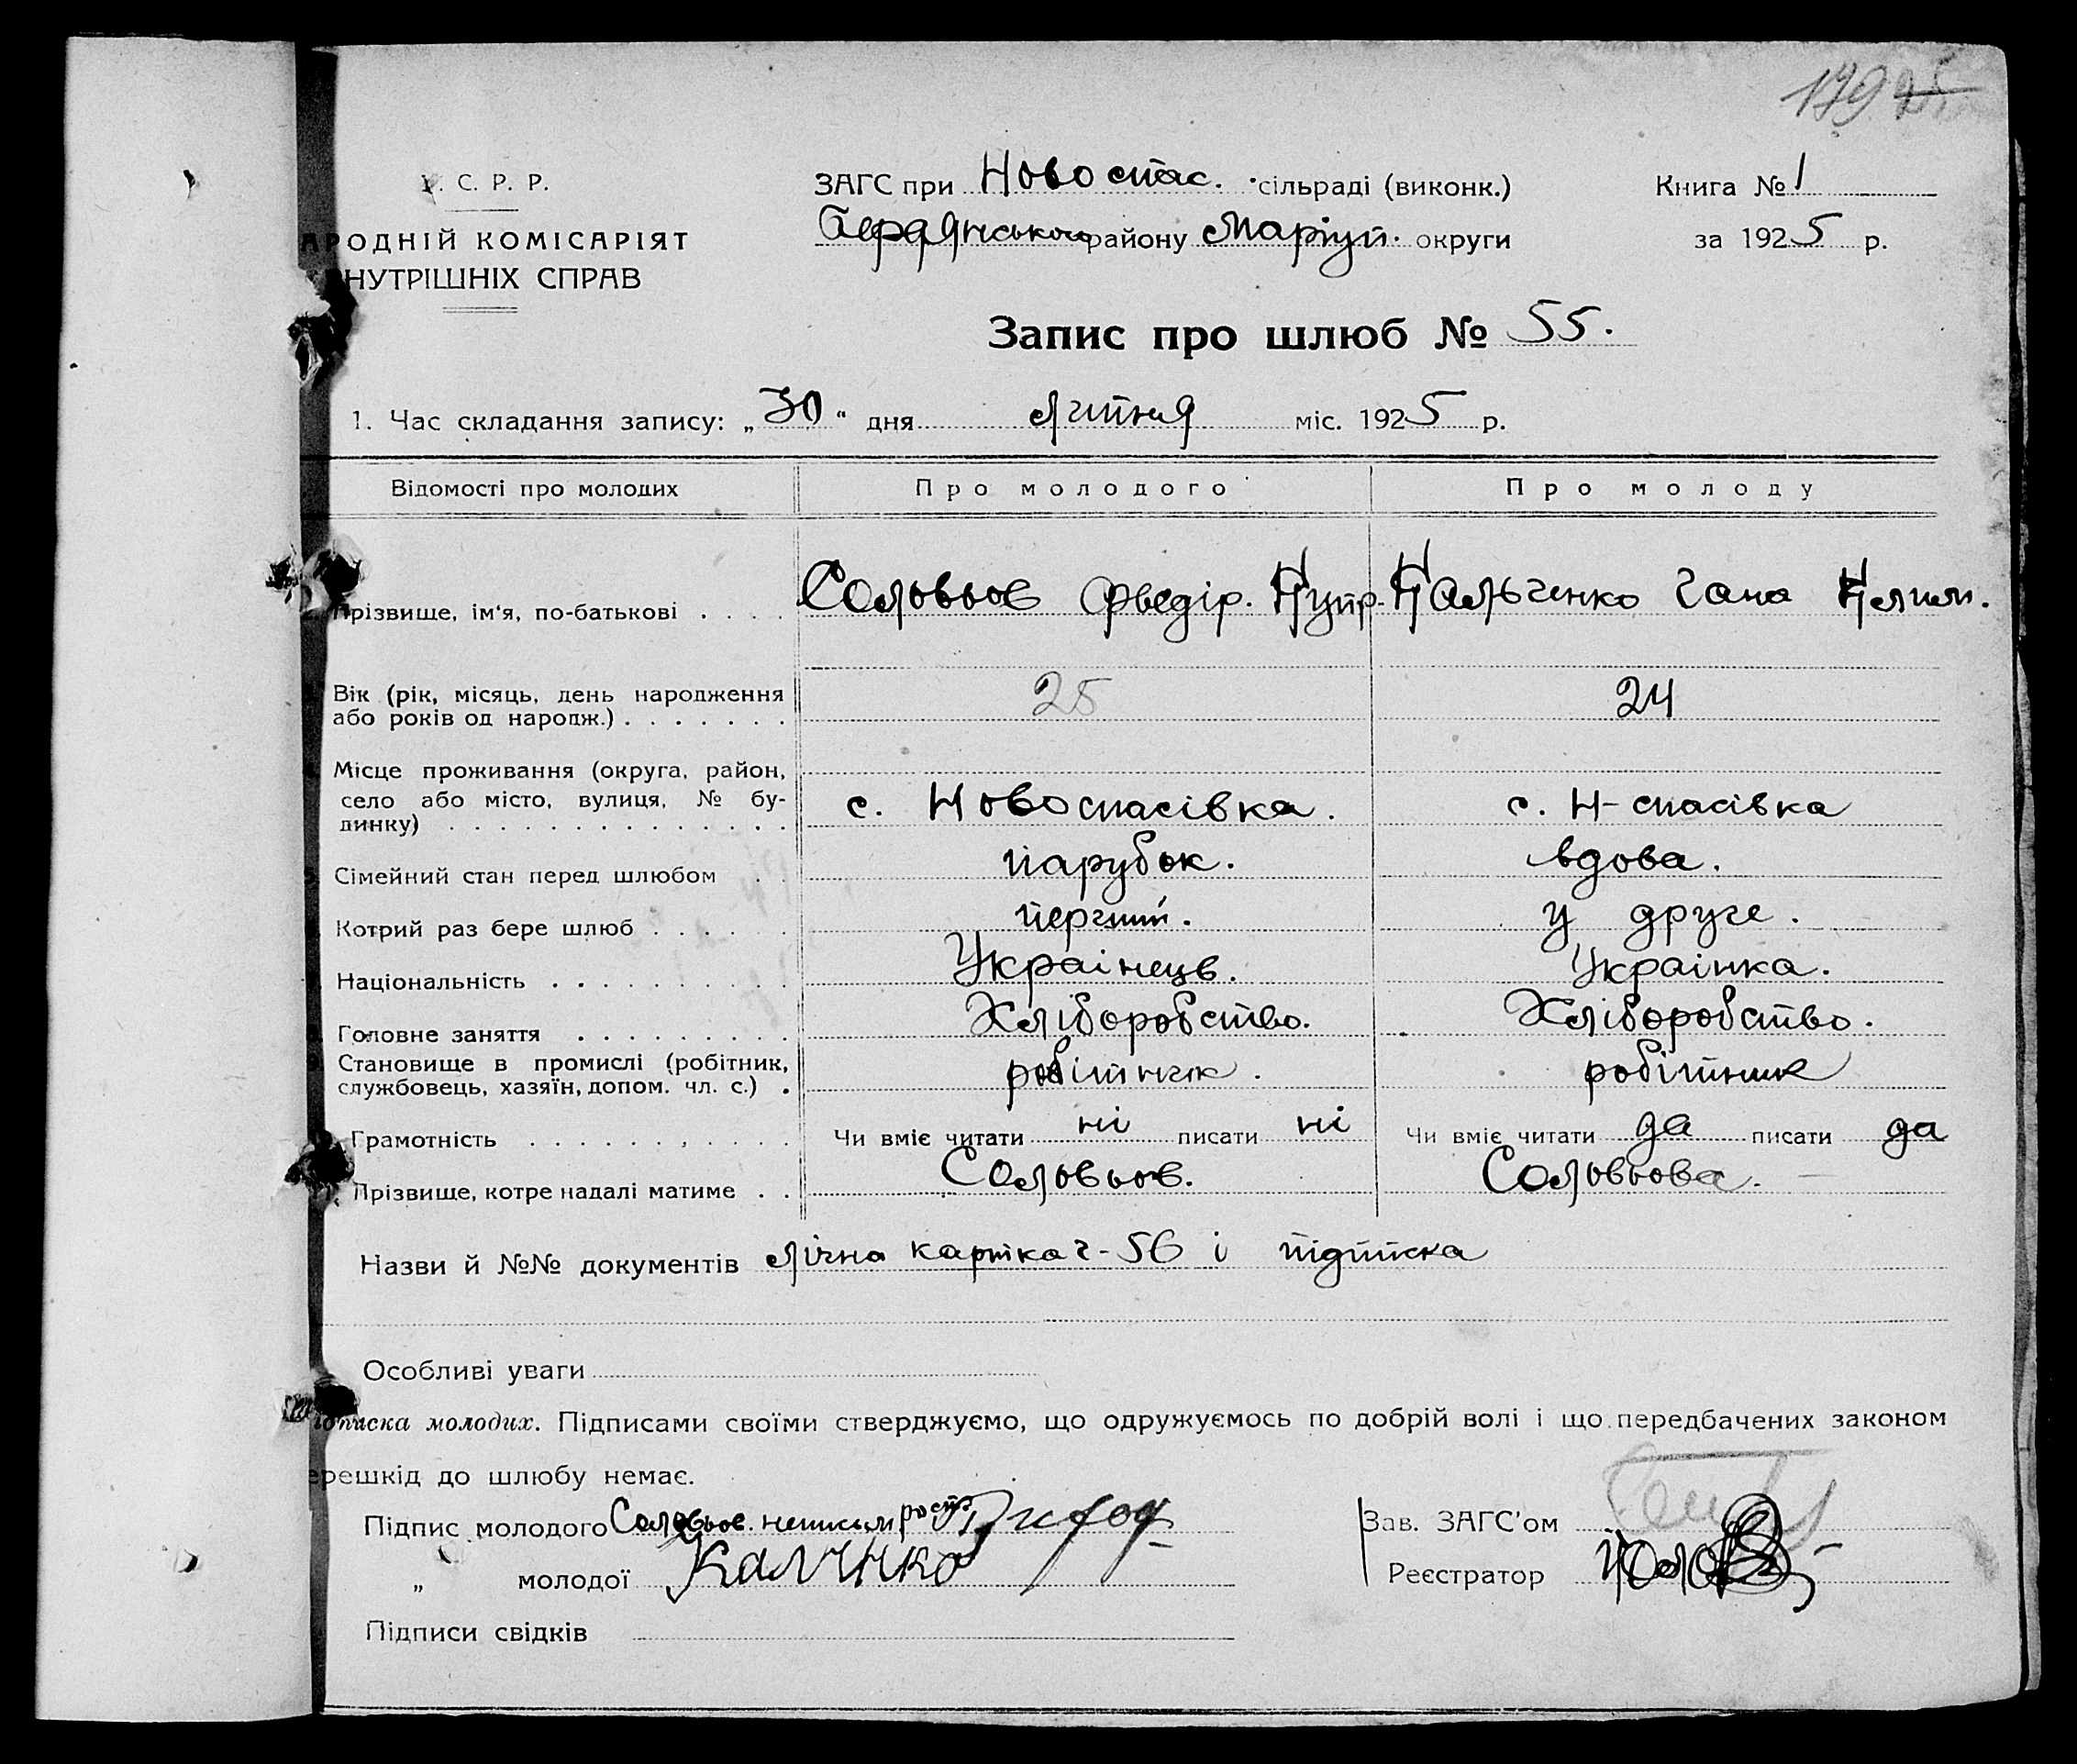 179
С. Р. Р.
НАРОДНІЙ КОМІСАРІЯТ
ВНУТРІШНІХ СПРАВ
ЗАГС при Новоспас. сільраді (виконк.)
Бердянського району Маріуп. округи
Книга № 1
за 1925 р.
Запис про шлюб № 55.
1. Час складання запису: „30“ дня липня міс. 1925 р.
Відомості про молодих
Про молодого
Про молоду
Прізвище, ім‘я, по-батькові . . . .
Соловьов Фведір. Купр.
Кальченко Гана Клим.
Вік (рік, місяць, день народження
або років од народж.) . . . . . . .
25
24
Місце проживання (округа, район,
село або місто, вулиця, № бу-
динку) . . . . . . . . . . . . . .
с. Новоспасівка.
с. Н-спасівка
Сімейний стан перед шлюбом . .
парубок.
вдова.
Котрий раз бере шлюб . . . . . .
перший.
у друге.
Національність . . . . . . . . . .
Украінець.
Украінка.
Головне заняття . . . . . . . . .
Хліборобство.
Хліборобство.
Становище в промислі (робітник,
службовець, хазяїн, допом. чл. с.) .
робітник.
робітник
Грамотність . . . . . . . . . . .
Чи вміє читати ні писати ні
Чи вміє читати да писати да
Прізвище, котре надалі матиме . .
Соловьов.
Соловьова.
Назви й №№ документів лічна картка ч-56 і підписка
Особливі уваги
Підписка молодих. Підписами своїми стверджуємо, що одружуємось по добрій волі і що передбачених законом
перешкід до шлюбу немає.
Підпис молодого Соловьов.
„ молодої Калчнко
Підписи свідків
Зав. ЗАГС'ом
Реєстратор